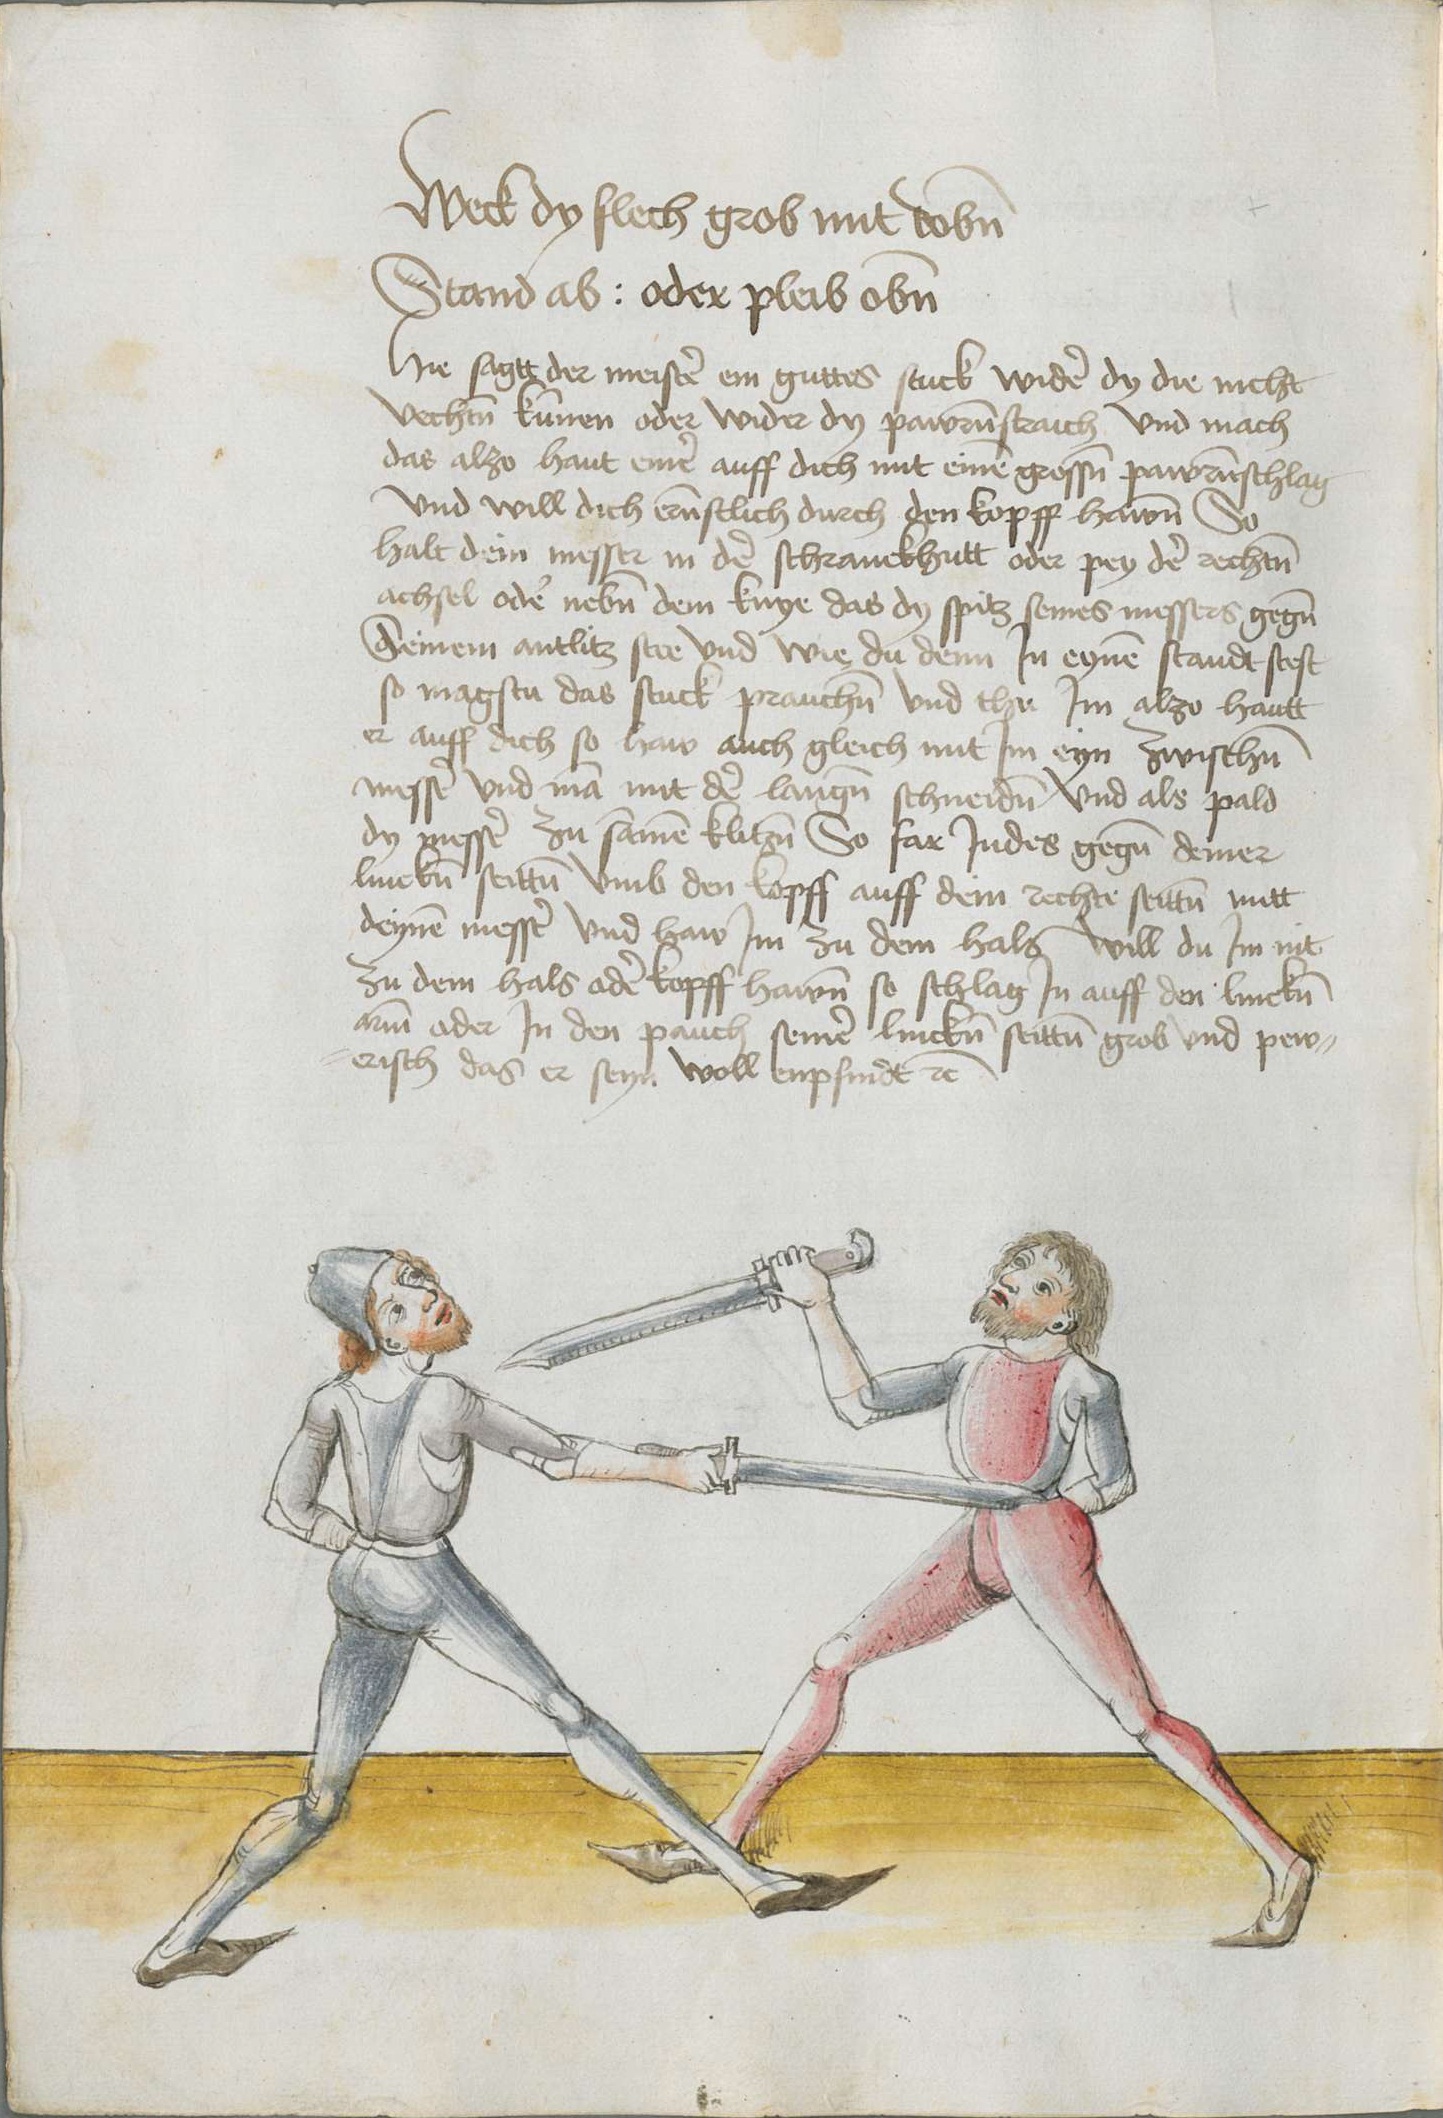 Weck dy flech grob mit tobn̄
Stand ab : oder pleib obn̄
Hie sagtt der meist̄e ein guttes stuck wid̄e dy die nicht
vechtn̄ kūnen oder wider dy pawrn̄straich vnd mach
das alzo haut ein̄e auff dich mit einē grossn̄ pawrn̄schlag
vnd will dich ern̄stlich durch den kopff hawn̄ So
halt dein messer in d̄e schranckhutt oder pey d̄e rechtn̄
achsel od̄e nebn̄ dem knye das dy spitz seines messers gegn̄
Seinem antlitz stee vnd wie du denn In eynē standt stest
so magstu das stuck prauchn̄ vnd thu Im alzo hautt
er auff dich so haw auch gleich mit Im eyn zwischn̄
mess̄e vnd mā mit d̄e langn̄ schneidn̄ vnd als pald
dy mess̄e zu samē klitzn̄ So far Indes gegn̄ deiner
linckn̄ seittn̄ vmb den kopff auff dein rechte seittn̄ mitt
deynē mess̄e vnd haw Im zu dem hals will du Im nit
zu dem hals od̄e kopff hawn̄ so schlag In auff den linckn̄
arm oder In den pauch sein̄e linckn̄ seittn̄ grob vnd pew=
=erisch das er seyn woll enpfindt rc̄